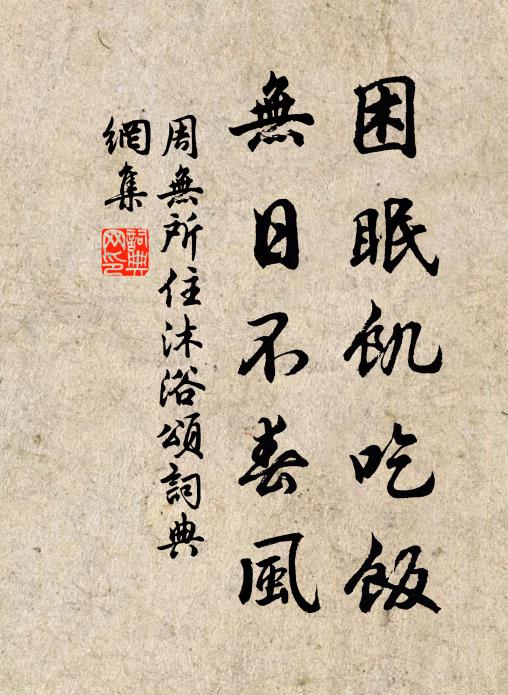 困眠飢吃飯
無日不春風
周無所住沐浴頌詞典
網集
詞典
網印